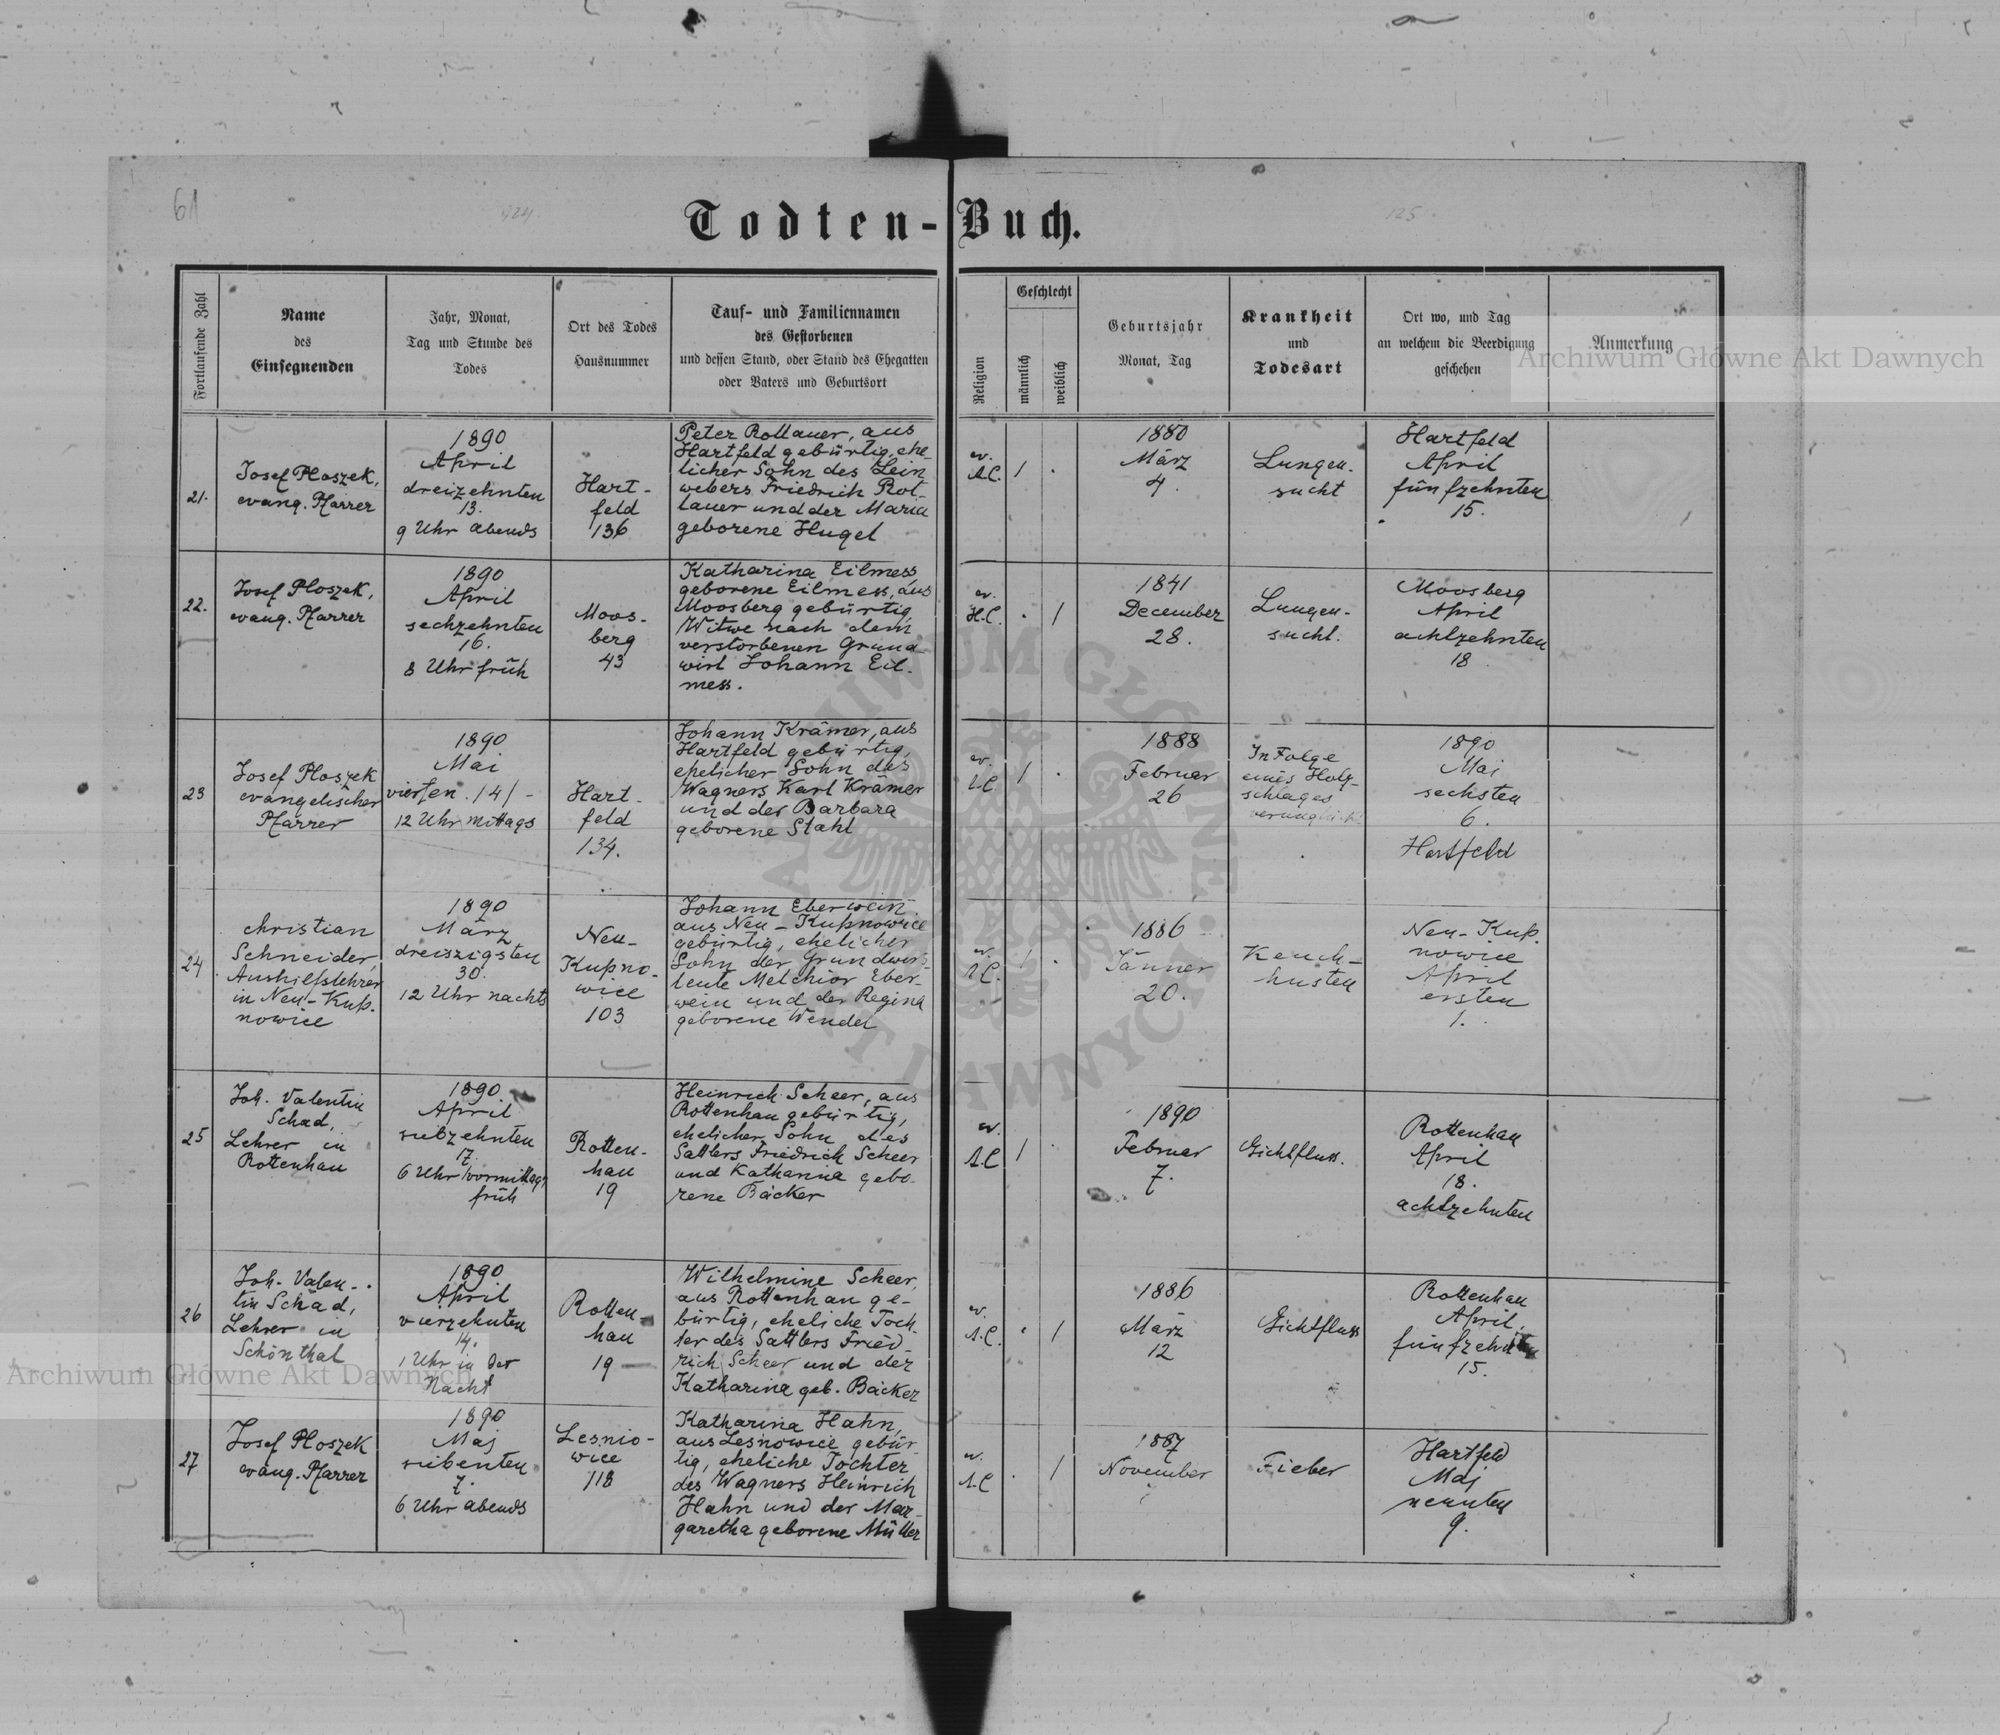 61
124
125
Todten-Buch.
Fortlaufende Zahl
Name
des
Einsegnenden
Jahr, Monat,
Tag und Stunde des
Todes
Ort des Todes
Hausnummer
Tauf- und Familiennamen
des Gestorbenen
und dessen Stand, oder Stand des Ehegatten
oder Vaters und Geburtsort
Religion
Geschlecht
männlich
weiblich
Geburtsjahr
Monat, Tag
Krankheit
und
Todesart
Ort wo, und Tag
an welchem die Beerdigung
geschehen
Anmerkung
Archiwum Główne Akt Dawnych
21.
Josef Ploszek,
evang. Pfarrer
1890
April
dreizehnten
13.
9 Uhr abends
Hart-
feld
136
Peter Rollauer, aus
Hartfeld gebürtig, ehe-
licher Sohn des Lein
webers Friedrich Rol-
lauer und der Maria
geborene Hugel
ev.
A.C.
1
.
1880
März
4.
Lungen-
sucht
Hartfeld
April
fünfzehnten
15.
22.
Josef Ploszek,
evang. Pfarrer
1890
April
sechzehnten
16.
8 Uhr früh
Moos-
berg
43
Katharina Eilmess,
geborene Eilmess, aus
Moosberg gebürtig,
Witwe nach dem
verstorbenen Grund-
wirt Johann Eil-
mess.
ev.
H.C.
.
1
1841
December
28.
Lungen-
sucht.
Moosberg
April
achtzehnten
18
23
Josef Ploszek
evangelischer
Pfarrer
1890
Mai
vierten /4/-
12 Uhr mittags
Hart-
feld
134.
Johann Krämer, aus
Hartfeld gebürtig,
ehelicher Sohn des
Wagners Karl Krämer
und der Barbara
geborene Stahl
ev.
A.C
1
.
1888
Februar
26
In Folge
eines Holz-
schlages
verunglückt
1890
Mai
sechsten
6.
Hartfeld
24
Christian
Schneider,
Aushilfslehrer
in Neu-Kupno-
nowice
1890
März
dreiszigsten
30.
12 Uhr nachts
Neu-
Kupno-
wice
103
Johann Eberwein
aus Neu-Kupnowice
gebürtig, ehelicher
Sohn der Grundwirs-
leute Melchior Eber-
wein und der Regina
geborene Wendel
ev.
A.C.
1
.
1886
Jänner
20.
Keuch-
husten
Neu-Kup-
nowice
April
ersten
1.
25
Joh. Valentin
Schad,
Lehrer in
Rottenhan
1890.
April
siebzehnten
17.
6 Uhr vormittags
früh
Rotten-
han
19
Heinrich Scheer, aus
Rottenhan gebürtig,
ehelicher Sohn des
Sattlers Friedrich Scheer
und Katharina gebo-
rene Bäcker
ev.
A.C
1
.
1890
Februar
7.
Gichtfluss.
Rottenhan
April
18.
achtzehnten
26
Joh. Valen-
tin Schad,
Lehrer in
Schönthal
1890
April
vierzehnten
14.
1 Uhr in der
Nacht
Rotten-
han
19 —
Wilhelmine Scheer,
aus Rottenhan ge-
bürtig, eheliche Toch-
ter des Sattlers Fried-
rich Scheer und der
Katharina geb. Bäcker
ev.
A.C.
.
1
1886
März
12
Gichtfluss
Rottenhan
April.
fünfzehnten
15.
Archiwum Główne Akt Dawnych
27
Josef Ploszek
evang. Pfarrer
1890
Maj
siebenten
7.
6 Uhr abends
Lesnio-
wice
118
Katharina Hahn,
aus Lesnowice gebür-
tig, eheliche Tochter
des Wagners Heinrich
Hahn und der Mar-
garetha geborene Müller
ev.
A.C
.
1
1887
November
Fieber
Hartfeld
Maj
neunten
9.